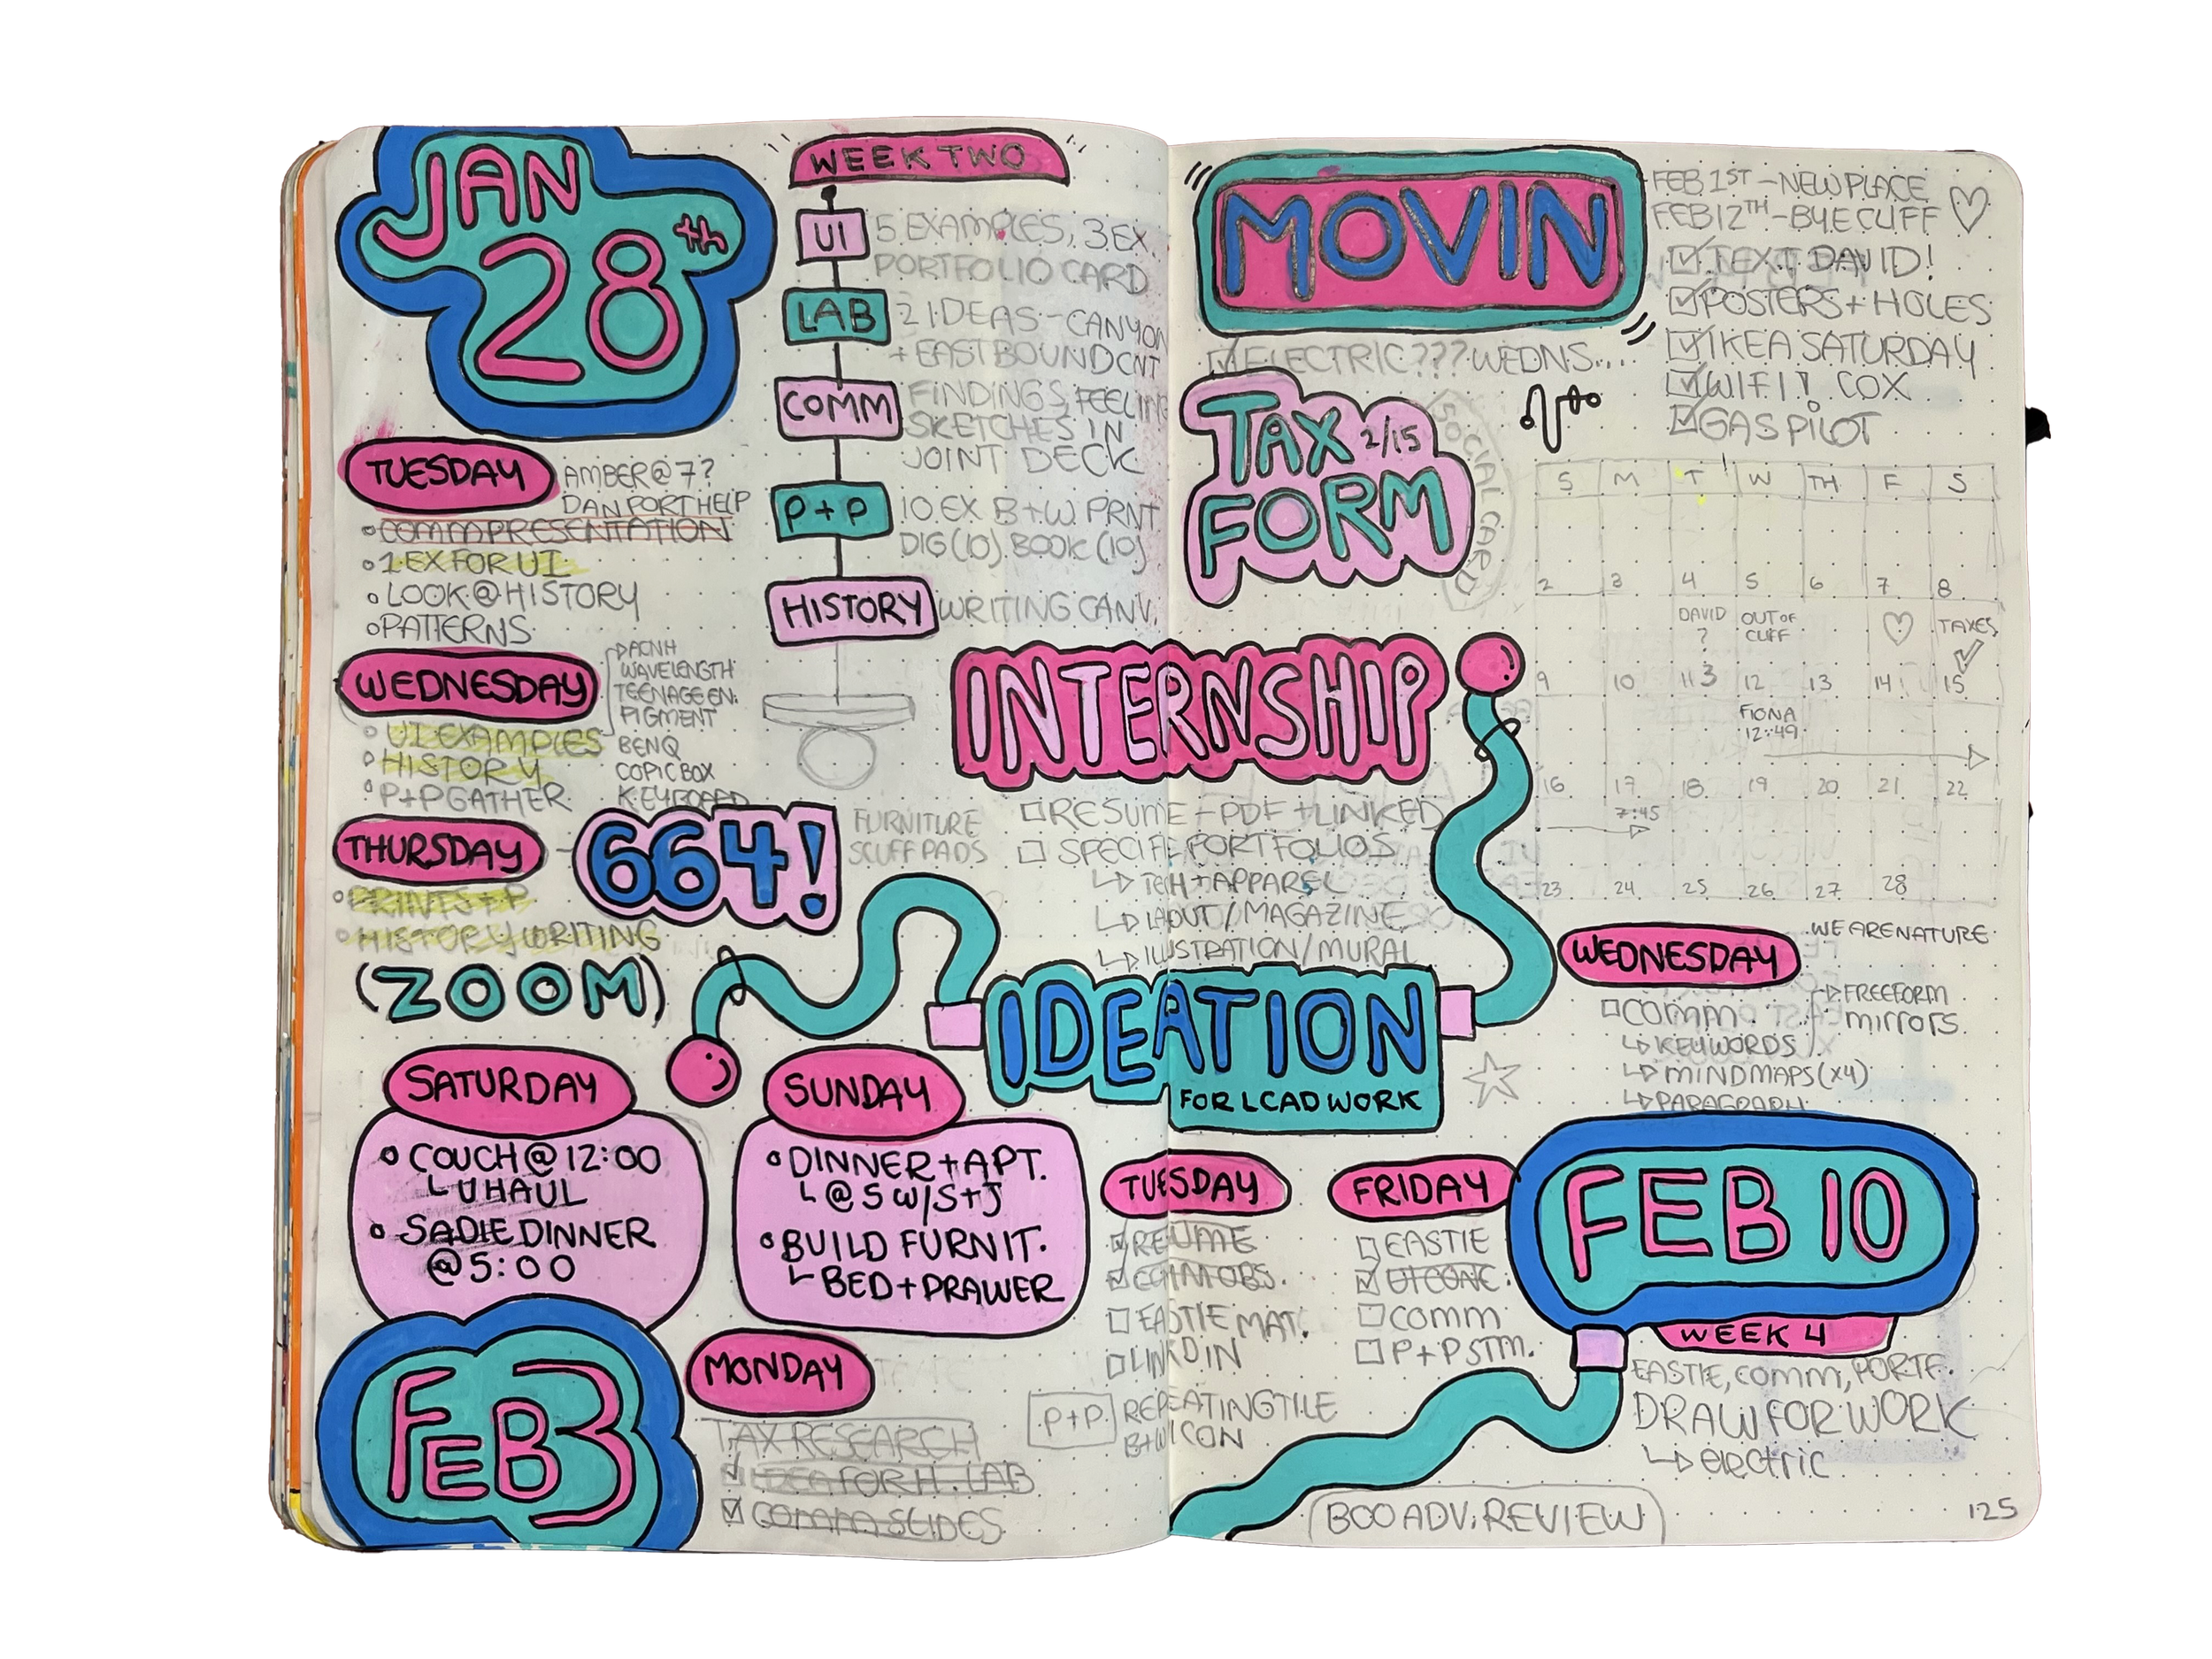 JAN
28th
WEEK TWO
UI
5 EXAMPLES, 3 EX
PORTFOLIO CARD
LAB
2 IDEAS - CANYON
+ EASTBOUND CNT
COMM
FINDINGS, FEELING
SKETCHES IN
JOINT DECK
P+P
10 EX B+W PRNT
DIG (10) BOOK (10)
HISTORY
WRITING CANV.
TUESDAY
AMBER @ 7?
DAN PORT HELP
COMM PRESENTATION
1 EX FOR UI
LOOK @ HISTORY
PATTERNS
WEDNESDAY
ACNH
WAVELENGTH
TEENAGE EN.
PIGMENT
BENQ
COPIC BOX
KEYBOARD
UI EXAMPLES
HISTORY
P+P GATHER
THURSDAY
664!
FURNITURE
SCUFF PADS
PRINTS + P
HISTORY WRITING
(ZOOM)
SATURDAY
COUCH @ 12:00
U HAUL
SADIE DINNER
@ 5:00
SUNDAY
DINNER + APT.
@ 5 W/ S+J
BUILD FURNIT.
BED + DRAWER
FEB 3
MONDAY
TAX RESEARCH
IDEA FOR H. LAB
COMM SLIDES
MOVIN
FEB 1ST - NEW PLACE
FEB 12TH - BYE CLIFF
TEXT DAVID!
POSTERS + HOLES
IKEA SATURDAY
WIFI! COX
GAS PILOT
ELECTRIC??? WEDNS...
TAX 2/15
FORM
SOCIAL CARD
S M T W TH F S
2 3 4 5 6 7 8
DAVID
?
OUT OF
CLIFF
TAXES
9 10 11 3 12 13 14 15
FIONA
12:49
16 17 18 19 20 21 22
7:45
23 24 25 26 27 28
INTERNSHIP
RESUME - PDF + LINKED
SPECIFI PORTFOLIOS
TECH + APPAREL
LAOUT / MAGAZINE
ILUSTRATION / MURAL
IDEATION
FOR LCAD WORK
WEDNESDAY
WE ARE NATURE
COMM
FREEFORM
mirrors
KEYWORDS
MINDMAPS (x4)
PARAGRAPH
TUESDAY
RESUME
COMM OBS.
EASTIE MAT.
LINKDIN
FRIDAY
EASTIE
UI CONC.
COMM
P+P STM.
P+P
REPEATING TILE
B+W ICON
FEB 10
WEEK 4
EASTIE, COMM, PORTF.
DRAW FOR WORK
electric
BOO ADV. REVIEW
125